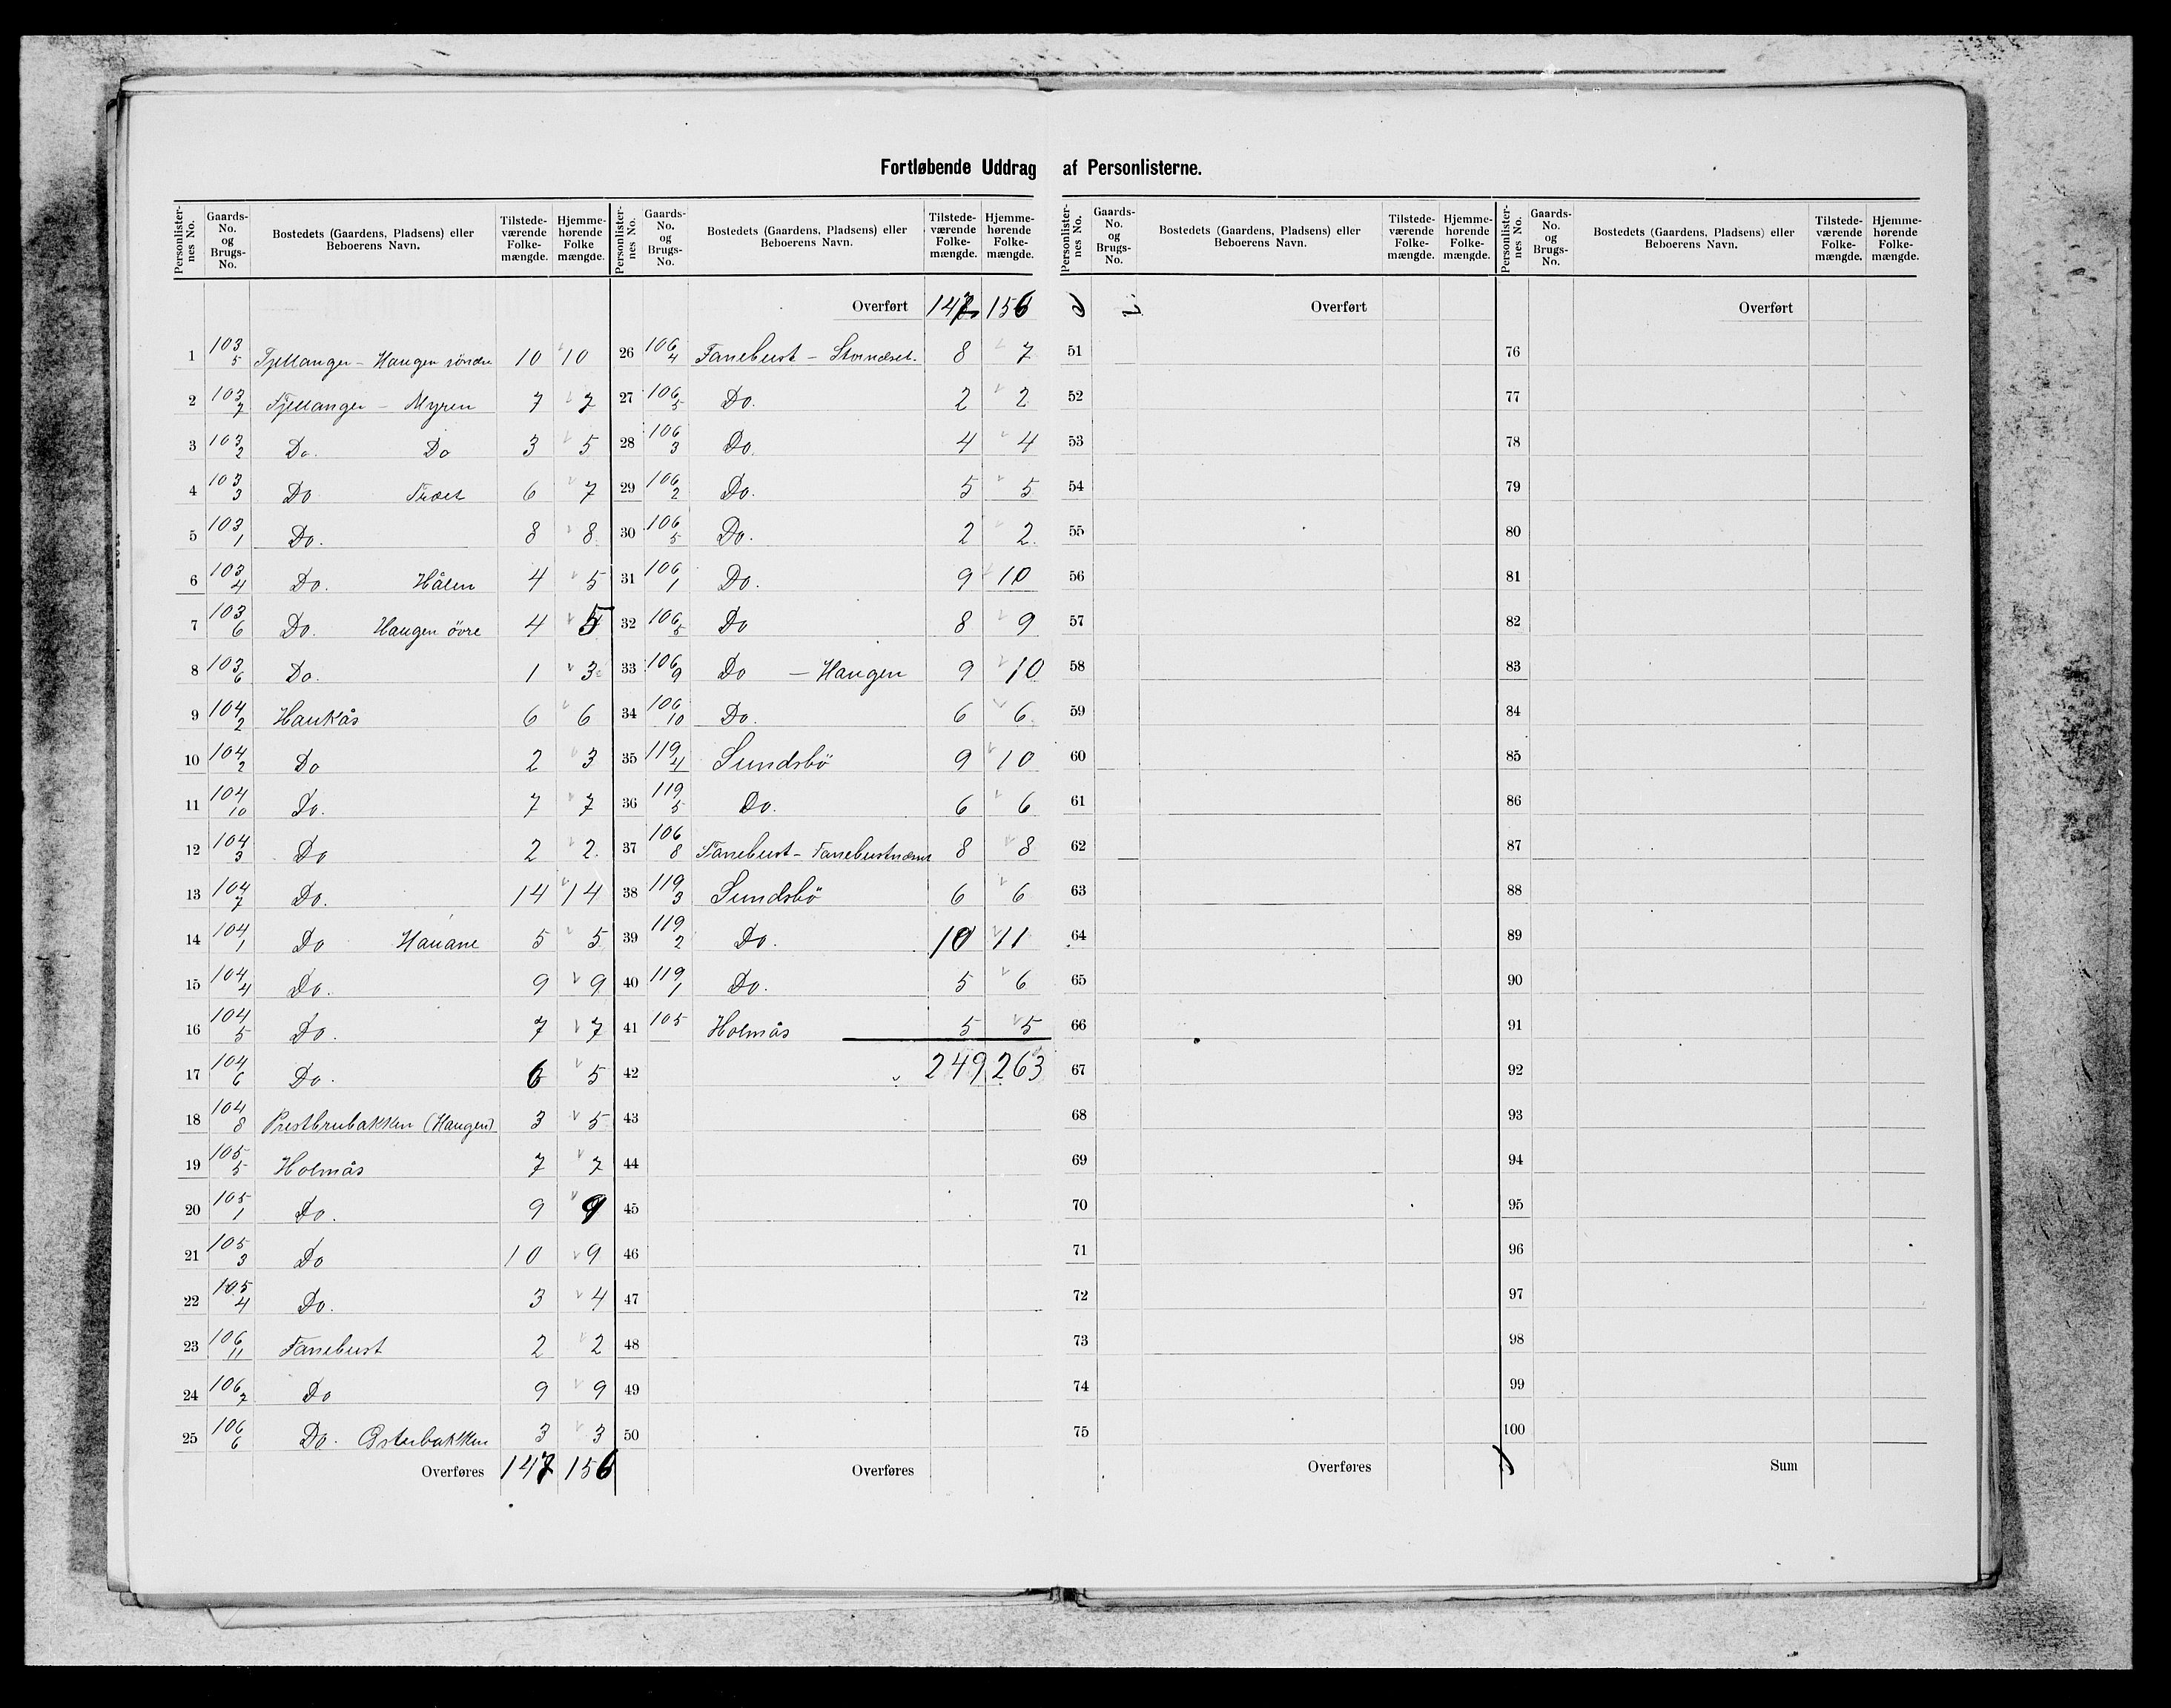 Fortløbende Uddrag af Personlisterne.
Personlister-nes No. Gaards-No. og Brugs-No. Bostedets (Gaardens, Pladsens) eller Beboerens Navn. Tilstede-værende Folke-mængde. Hjemme-hørende Folke mængde.
1 103/5 Fjellanger - Haugen söndre 10 10
2 103/7 Fjellanger - Myren 7 7
3 103/2 Do. Do 3 5
4 103/3 Do Træet 6 7
5 103/1 Do. 8 8
6 103/4 Do. Hålen 4 5
7 103/6 Do. Haugen övre 4 5
8 103/6 Do. 1 3
9 104/2 Haukås 6 6
10 104/2 Do 2 3
11 104/10 Do. 7 7
12 104/3 Do 2 2
13 104/7 Do. 14 14
14 104/1 Do Hauane 5 5
15 104/4 Do. 9 9
16 104/5 Do. 7 7
17 104/6 Do. 6 5
18 104/8 Prestbrubakken (Haugen) 3 5
19 105/5 Holmås 7 7
20 105/1 Do. 9 9
21 105/3 Do 10 9
22 105/4 Do. 3 4
23 106/11 Fanebust 2 2
24 106/7 Do 9 9
25 106/6 Do. Østerbakken 3 3
Overføres 147 156
Personlister-nes No. Gaards-No. og Brugs-No. Bostedets (Gaardens, Pladsens) eller Beboerens Navn. Tilstede-værende Folke-mængde. Hjemme-hørende Folke-mængde.
Overført 147 156
26 106/4 Fanebust - Stornæset. 8 7
27 106/5 Do. 2 2
28 106/3 Do. 4 4
29 106/2 Do. 5 5
30 106/5 Do. 2 2.
31 106/1 Do. 9 10
32 106/5 Do 8 9
33 106/9 Do - Haugen 9 10
34 106/10 Do. 6 6.
35 119/4 Sundsbö 9 10
36 119/5 Do. 6 6
37 106/8 Fanebust - Fanebustnæset 8 8
38 119/3 Sundsbö 6 6
39 119/2 Do. 10 11
40 119/1 Do. 5 6
41 105 Holmås 5 5
42 249 263
43
44
45
46
47
48
49
50
Overføres
Personlister-nes No. Gaards-No. og Brugs-No. Bostedets (Gaardens, Pladsens) eller Beboerens Navn. Tilstede-værende Folke-mængde. Hjemme-hørende Folke-mængde.
Overført
51
52
53
54
55
56
57
58
59
60
61
62
63
64
65
66
67
68
69
70
71
72
73
74
75
Overføres
Personlister-nes No. Gaards-No. og Brugs-No. Bostedets (Gaardens, Pladsens) eller Beboerens Navn. Tilstede-værende Folke-mængde. Hjemme-hørende Folke-mængde.
Overført
76
77
78
79
80
81
82
83
84
85
86
87
88
89
90
91
92
93
94
95
96
97
98
99
100
Sum